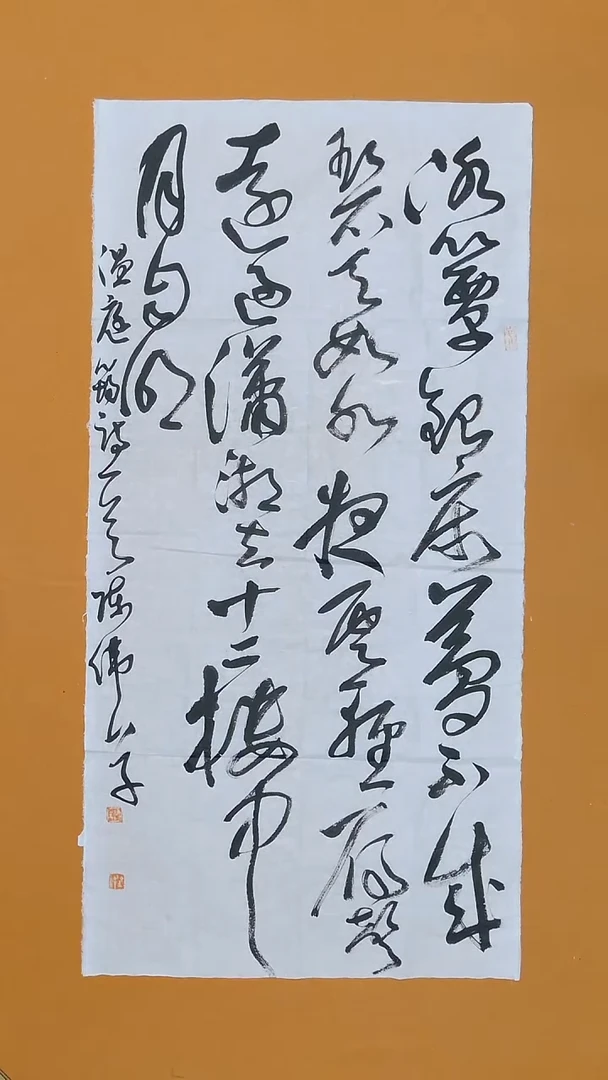 冰簟銀床夢不成
碧天如水夜雲輕雁聲
遠過瀟湘去十二樓中
月自明
溫庭筠詩一首陳偉